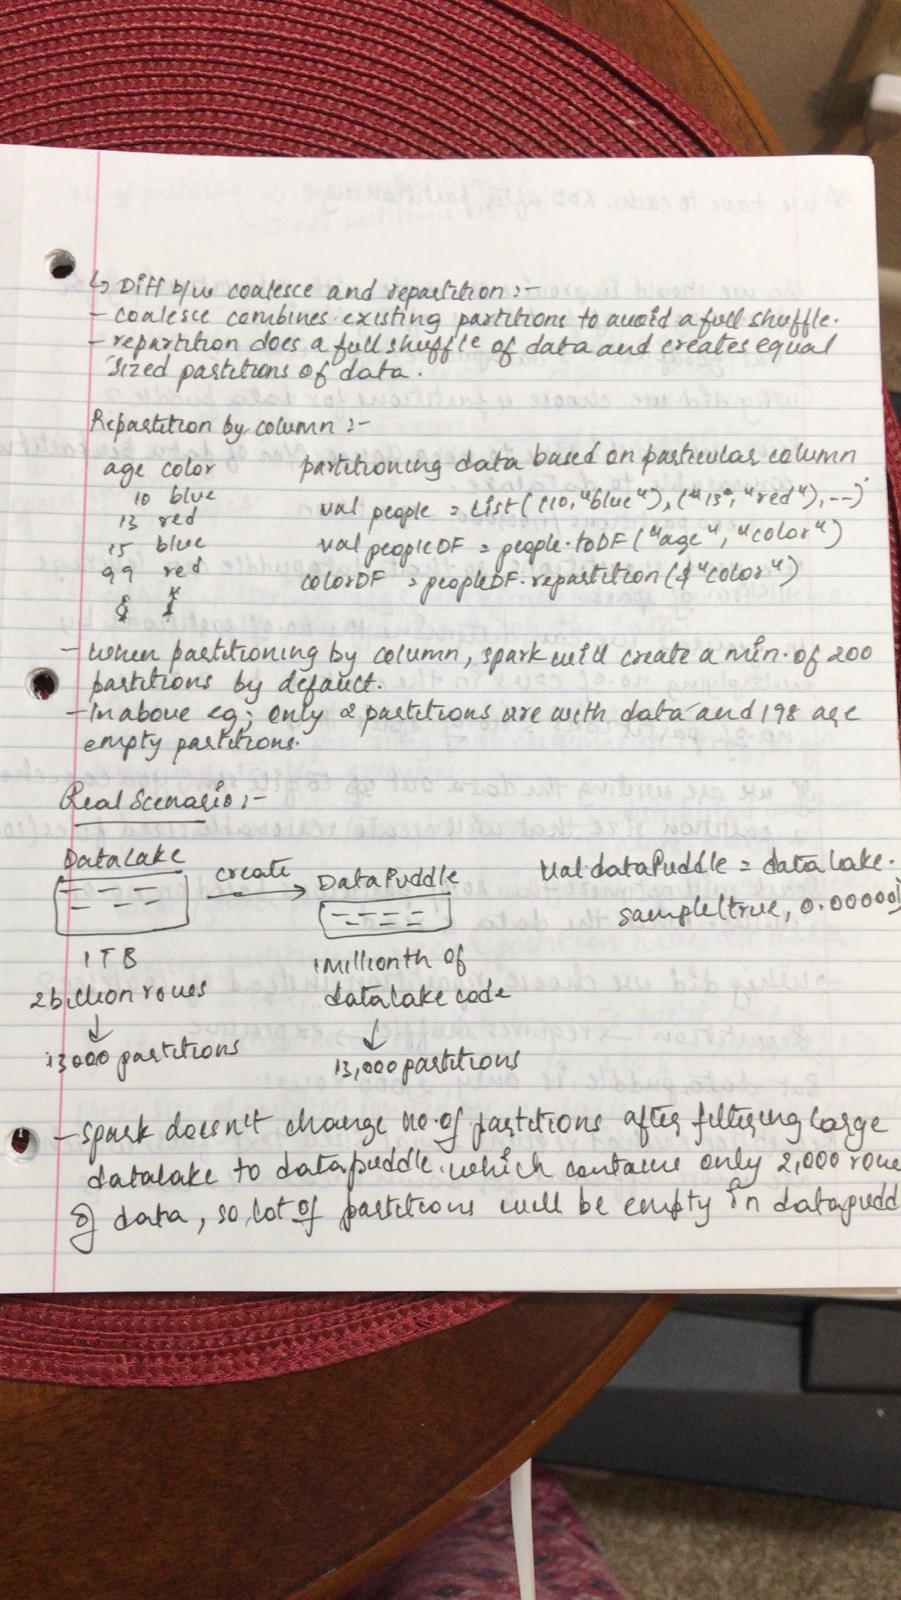 ↳ Diff b/w coalesce and repartition :-
- coalesce combines existing partitions to avoid a full shuffle.
- repartition does a full shuffle of data and creates equal
sized partitions of data.
Repartition by column :-
age color partitioning data based on particular column
10 blue val people = List((10, "blue"), ("13", "red"), --)
13 red
15 blue val peopleDF = people.toDF("age", "color")
99 red colorDF = peopleDF.repartition($"color")
- When partitioning by column, spark will create a min. of 200
partitions by default.
- In above eg; only 2 partitions are with data and 198 are
empty partitions.
Real Scenario :-
DataLake create → DataPuddle val dataPuddle = data lake.
sample(true, 0.000001
1 TB 1 millionth of
2 billion rows datalake code
↓ ↓
13000 partitions 13,000 partitions
- spark doesn't change no. of partitions after filtering large
datalake to datapuddle. which contains only 2,000 rows
of data, so, lot of partitions will be empty in datapudd